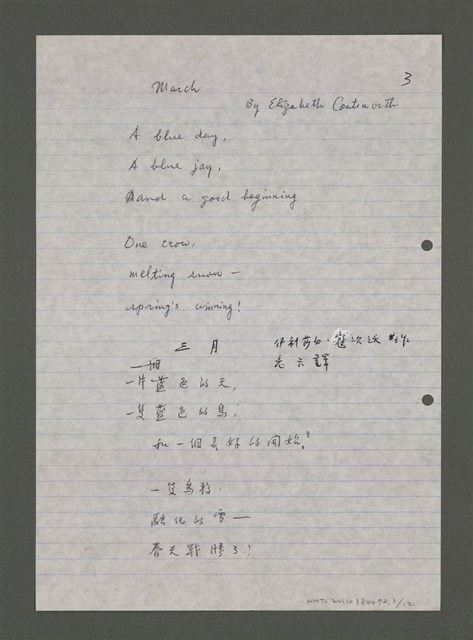 3
March
By Elizabeth Coatsworth
A blue day,
A blue jay,
and a good beginning
One crow,
melting snow —
spring's winning!
三月
伊利莎白·寇次沃 作
老六譯
一片藍色的天,
一隻藍色的鳥,
和一個美好的開始!
一隻烏鴉,
融化的雪——
春天戰勝了!